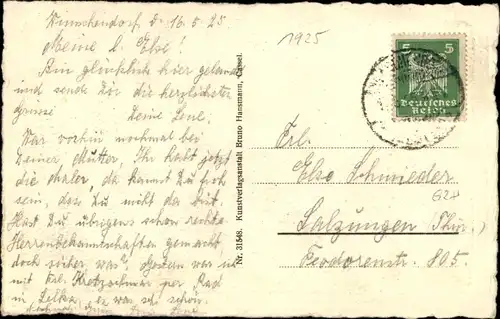 Wünschendorf d. 16.5.25
Meine l. Else!
Bin glücklich hier gelandet
und sende Dir die herzlichsten
Grüsse Deine Lene.
War vorhin nochmal bei
Deiner Mutter, Ihr habt jetzt
die Maler, da kannst Du froh
sein, dass Du nicht da bist.
Hast Du übrigens schon rechte
Herrenbekanntschaften gemacht
doch sicher was? Gestern war ich
mit Frl. Kretzschmar per Rad
in es war sehr schön.
Nr. 31548. Kunstverlagsanstalt Bruno Hansmann, Cassel.
1925
5 5
Deutsches
Reich
Frl.
Else Schmieder
Salzungen (Thür.)
Feodorenstr. 805.